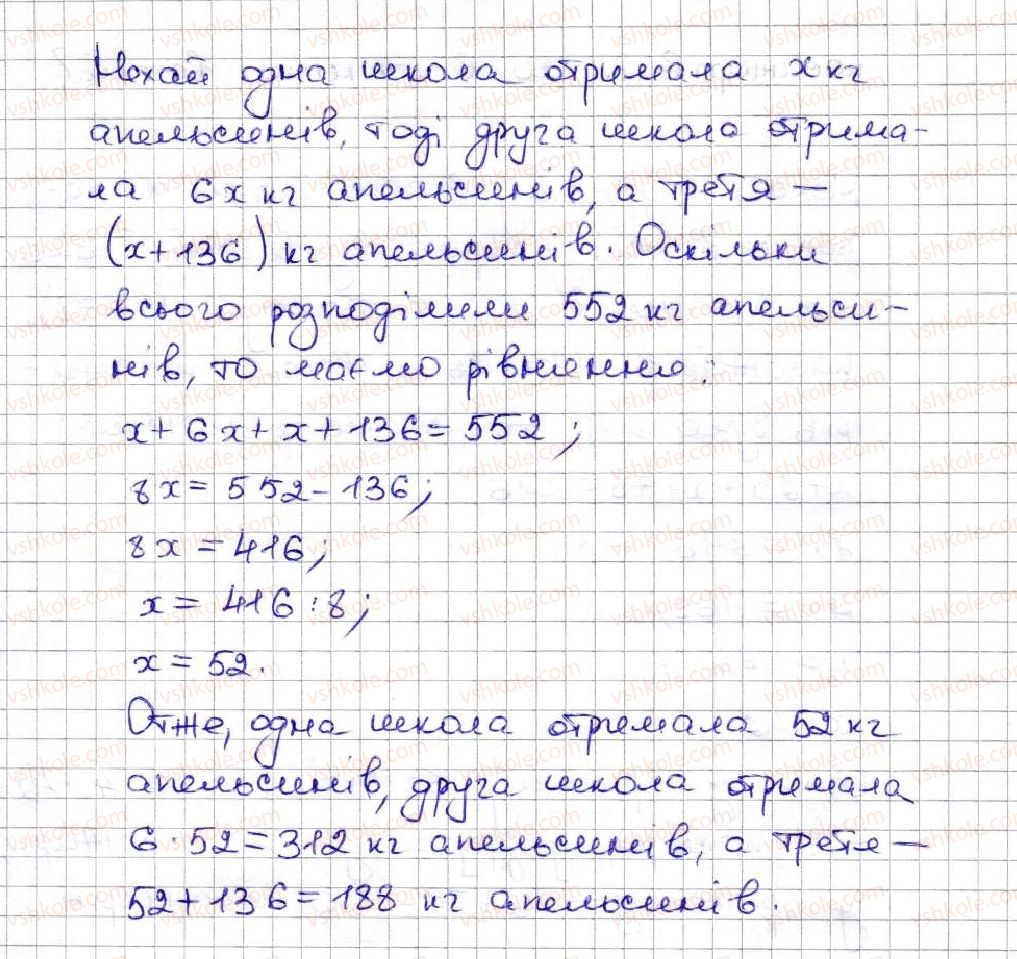 Нехай одна школа отримала x кг
апельсинів, тоді друга школа отрима-
ла 6x кг апельсинів, а третя —
(x+136) кг апельсинів. Оскільки
всього розподілили 552 кг апельси-
нів, то маємо рівняння:
x+6x+x+136=552;
8x=552-136;
8x=416;
x=416:8;
x=52.
Отже, одна школа отримала 52 кг
апельсинів, друга школа отримала
6·52=312 кг апельсинів, а третя —
52+136=188 кг апельсинів.